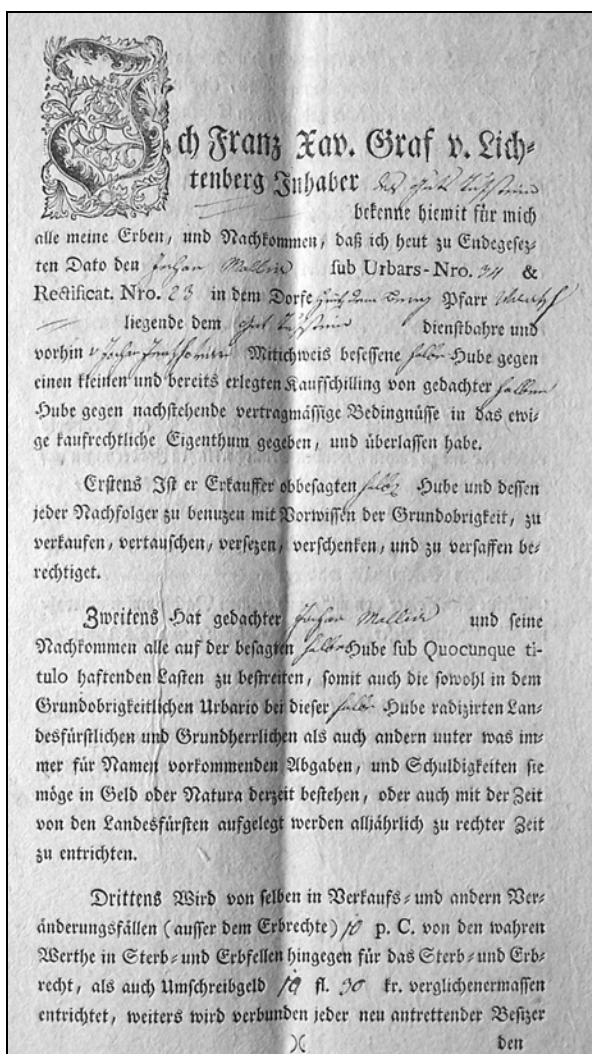 Ich Franz Xav. Graf v. Lich-
tenberg Inhaber des Guts
bekenne hiemit für mich
alle meine Erben, und Nachkommen, daß ich heut zu Endegesez-
ten Dato den sub Urbars-Nro. 34 &
Rectificat. Nro. 23 in dem Dorfe Pfarr
liegende dem Gut dienstbahre und
vorhin Mitichweis besessene halbe Hube gegen
einen kleinen und bereits erlegten Kaufschilling von gedachter halben
Hube gegen nachstehende vertragmässige Bedingnüsse in das ewi-
ge kaufrechtliche Eigenthum gegeben, und überlassen habe.
Erstens Ist er Erkauffer obbesagten Hube und dessen
jeder Nachfolger zu benuzen mit Vorwissen der Grundobrigkeit, zu
verkaufen, vertauschen, versezen, verschenken, und zu versaffen be-
rechtiget.
Zweitens Hat gedachter und seine
Nachkommen alle auf der besagten halbe Hube sub Quocunque ti-
tulo haftenden Lasten zu bestreiten, somit auch die sowohl in dem
Grundobrigkeitlichen Urbario bei dieser halbe Hube radizirten Lan-
desfürstlichen und Grundherrlichen als auch andern unter was im-
mer für Namen vorkommenden Abgaben, und Schuldigkeiten sie
möge in Geld oder Natura derzeit bestehen, oder auch mit der Zeit
von den Landesfürsten aufgelegt werden alljährlich zu rechter Zeit
zu entrichten.
Drittens Wird von selben in Verkaufs- und andern Ver-
änderungsfällen (ausser dem Erbrechte) 10 p. C. von den wahren
Werthe in Sterb- und Erbfellen hingegen für das Sterb- und Erb-
recht, als auch Umschreibgeld 10 fl. 30 kr. verglichenermassen
entrichtet, weiters wird verbunden jeder neu antrettender Besizer
)( den